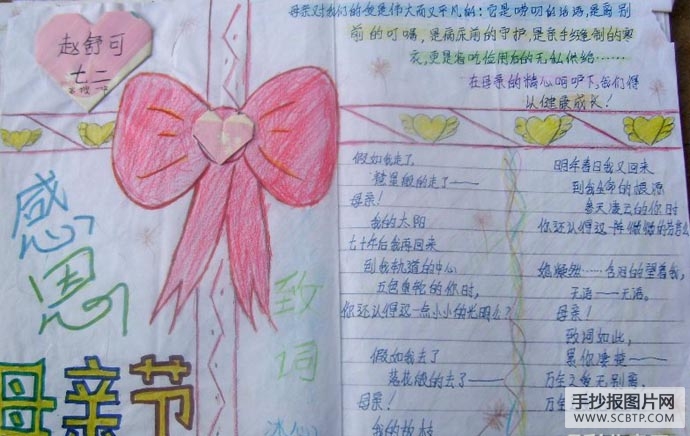 赵舒可
七二
母亲对我们的爱是伟大而又平凡的：它是唠叨的话语，是离别
前的叮嘱，是病床前的守护，是亲手缝制的寒
衣，更是省吃俭用后的无私供给……
在母亲的精心呵护下，我们得
以健康成长！
感
恩
母亲节
致
词
冰心
假如我走了，
彗星般的走了——
母亲！
我的太阳
七十年后我再回来
到我轨道的中心
五色重轮的你时，
你还认得这一点小小的光明么？
假如我去了
落花般的去了——
母亲！
我的故枝
明年春日我又回来
到我生命的根源
参天凌云的你时
你还认得这一阵微微的
含泪的望着我，
无语——无语。
母亲！
致词如此，
累你凄楚——
万全之爱无别离，
万全之
手抄报图片网
WWW.SCBTP.COM